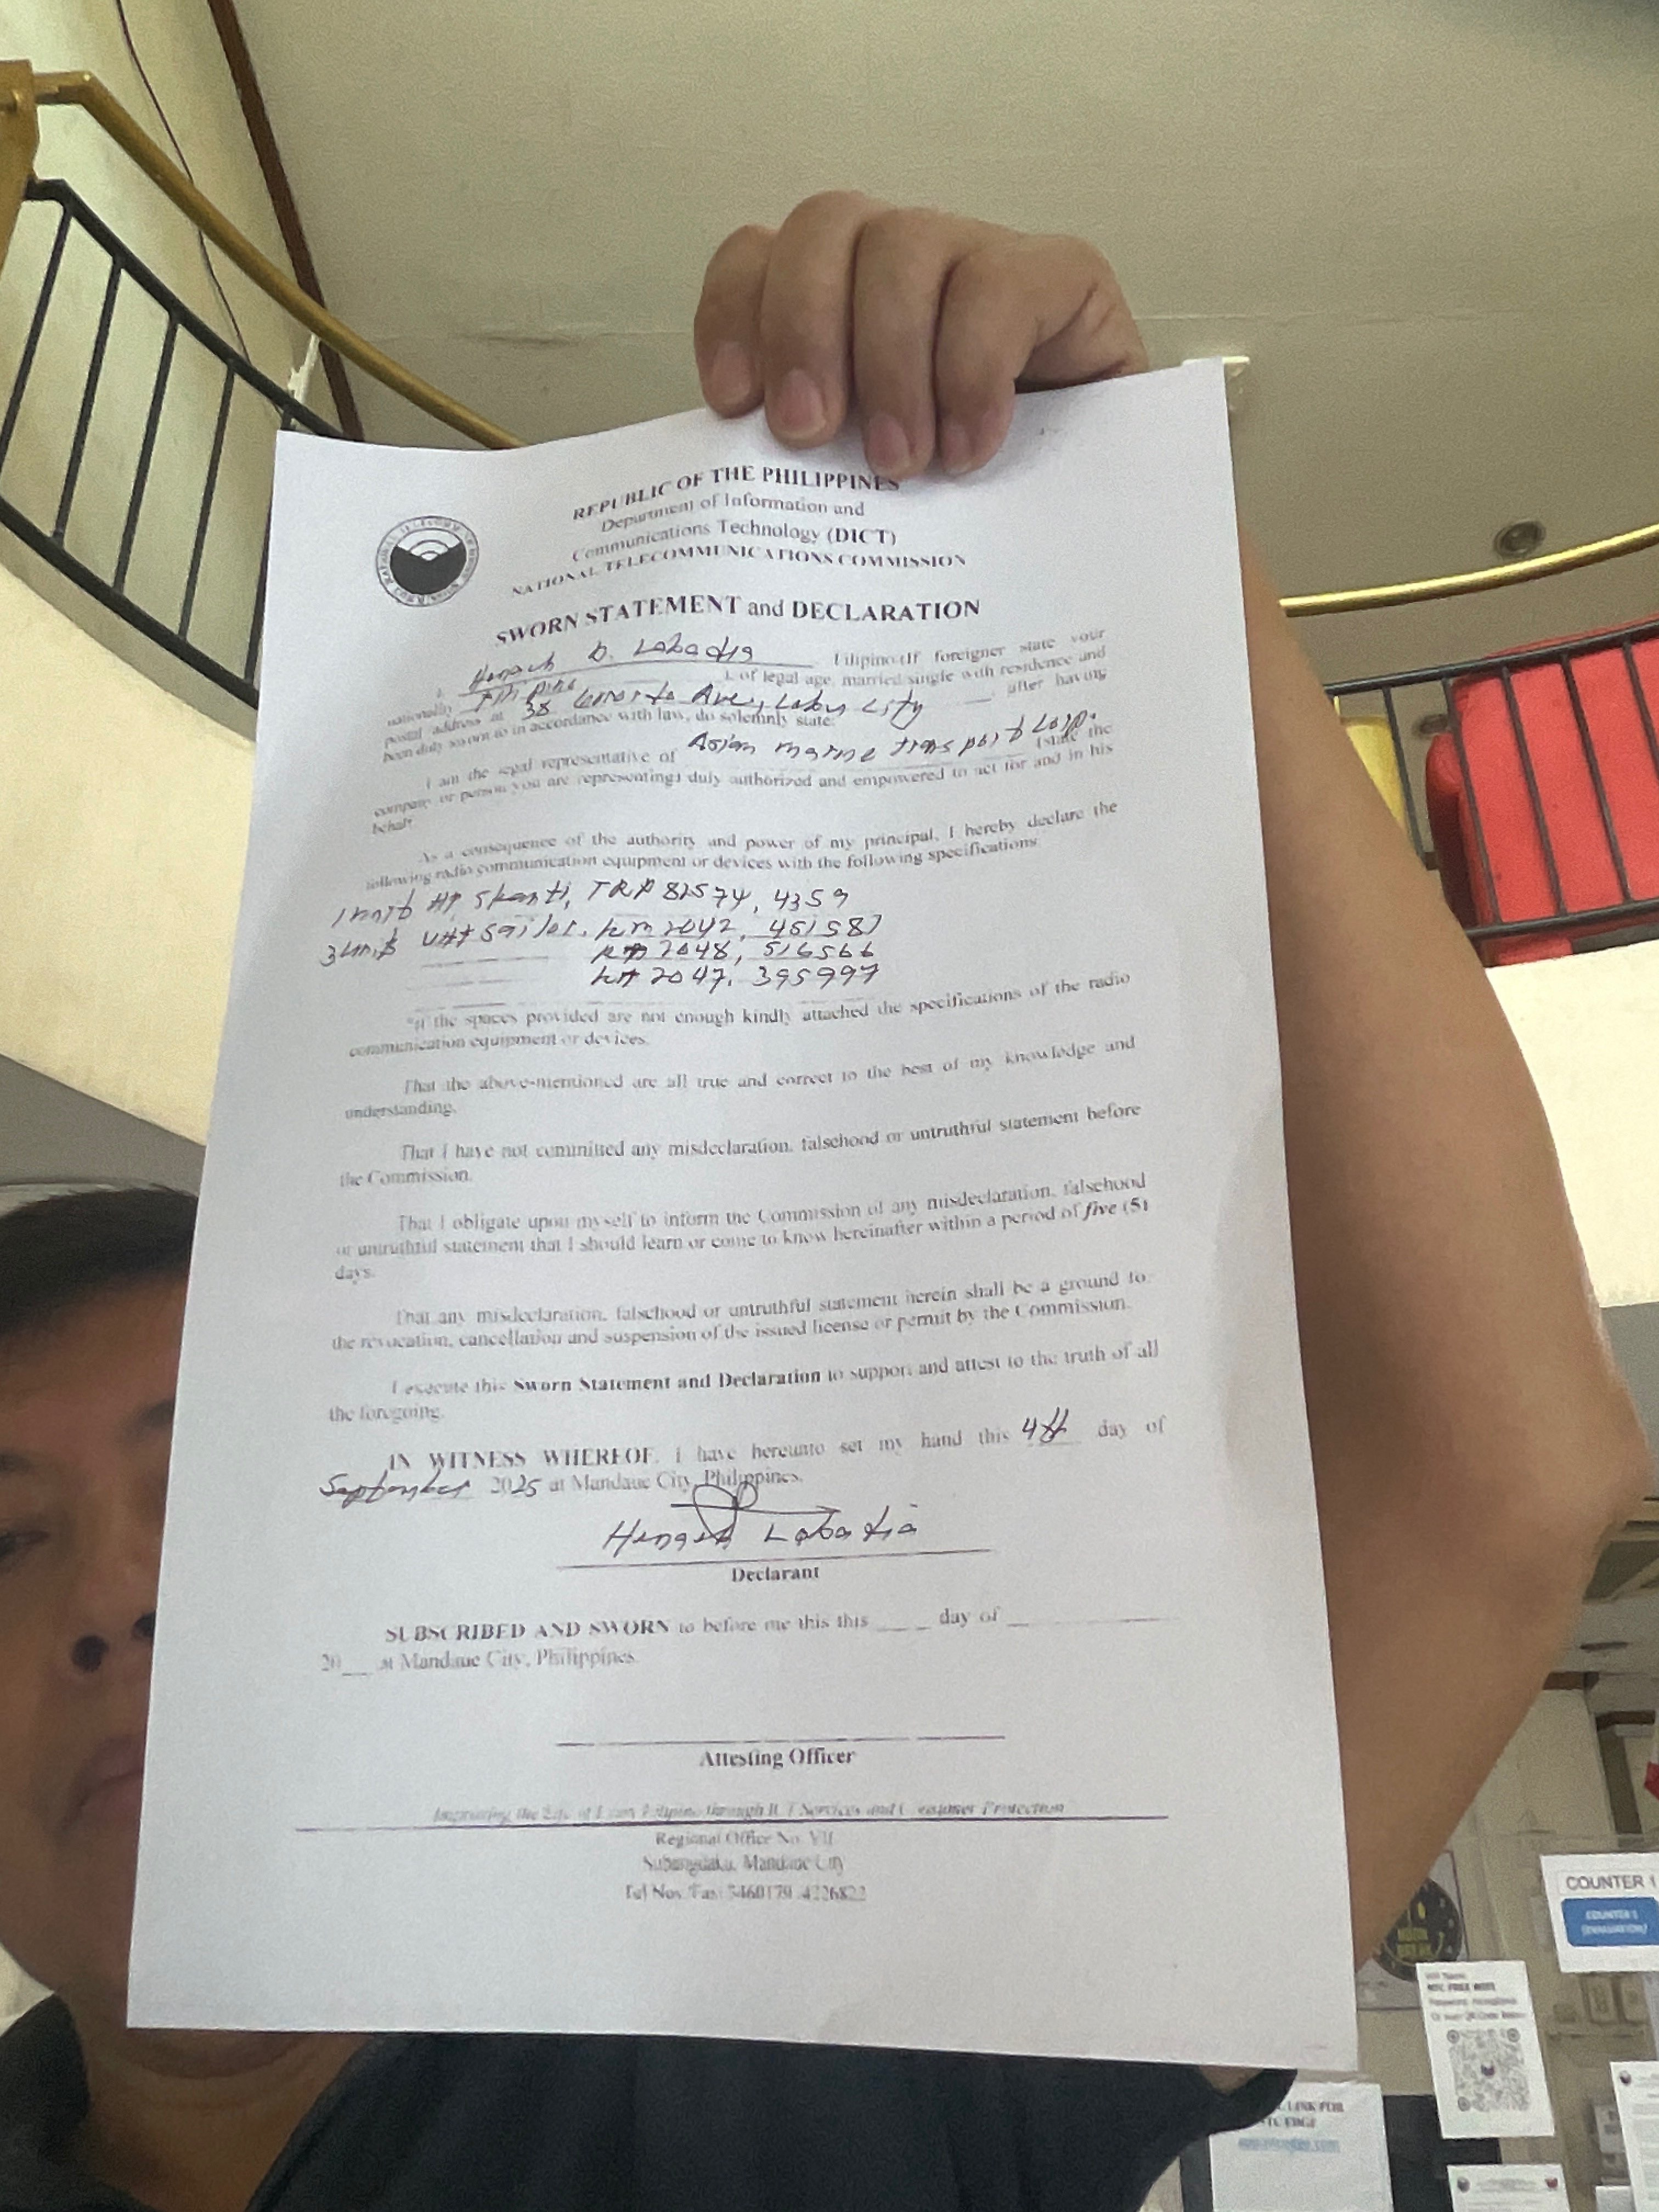 REPUBLIC OF THE PHILIPPINES
Department of Information and
Communications Technology (DICT)
NATIONAL TELECOMMUNICATIONS COMMISSION
SWORN STATEMENT and DECLARATION
I, D. Labadia Filipino (If foreigner state your
nationality , of legal age, married/single with residence and
postal address at 38 Ave, City after having
been duly sworn to in accordance with law, do solemnly state:
I am the legal representative of Asian marine transport Corp. (state the
company or person you are representing) duly authorized and empowered to act for and in his
behalf.
As a consequence of the authority and power of my principal, I hereby declare the
following radio communication equipment or devices with the following specifications:
1 unit Skanti, TRP 4359
3 units sailor,
2048, 516566
2047, 395997
*If the spaces provided are not enough kindly attached the specifications of the radio
communication equipment or devices.
That the above-mentioned are all true and correct to the best of my knowledge and
understanding.
That I have not committed any misdeclaration, falsehood or untruthful statement before
the Commission.
That I obligate upon myself to inform the Commission of any misdeclaration, falsehood
or untruthful statement that I should learn or come to know hereinafter within a period of five (5)
days.
That any misdeclaration, falsehood or untruthful statement herein shall be a ground to
the revocation, cancellation and suspension of the issued license or permit by the Commission.
I execute this Sworn Statement and Declaration to support and attest to the truth of all
the foregoing.
IN WITNESS WHEREOF, I have hereunto set my hand this 4th day of
September 2025 at Mandaue City, Philippines.
Labadia
Declarant
SUBSCRIBED AND SWORN to before me this this ____ day of ____
20__ at Mandaue City, Philippines.
Attesting Officer
Improving the Life of Every Filipino through ICT Services and Consumer Protection
Regional Office No. VII
Subangdaku, Mandaue City
Tel Nos/Fax: 3460179
COUNTER 1
COUNTER 1
(EVALUATION)
NTC FREE WIFI
LINK FOR